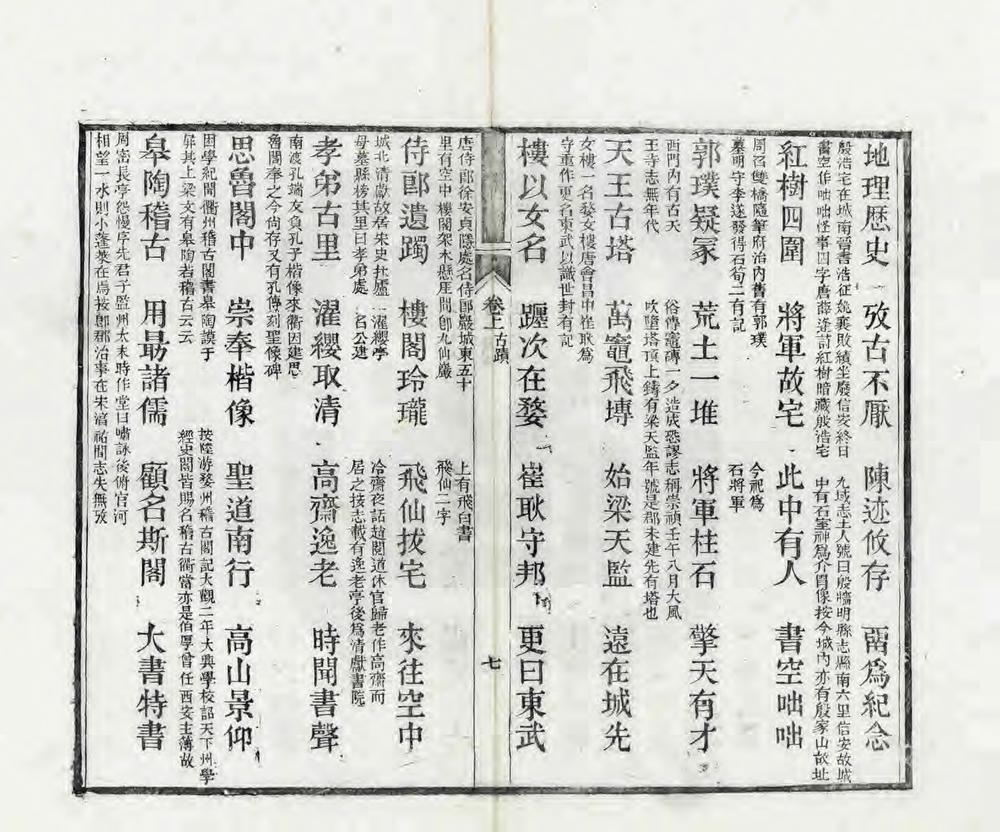 地理歷史 攷古不厭 陳迹攸存 畱爲紀念
殷浩宅在城南晉書浩征姚襄敗績坐廢信安終日 九域志土人號曰殷牆明縣志縣南六里信安故城
書空作咄咄怪事四字唐薛逢詩紅樹暗藏殷浩宅 中有石室神爲介冑像按今城內亦有殷家山故址
紅樹四圍 將軍故宅 此中有人 書空咄咄
周召雙橋隨筆府治內舊有郭璞 今祀爲
墓明守李遂發得石筍二有記 石將軍
郭璞疑冢 荒土一堆 將軍柱石 擎天有才
西門內有古天 俗傳竈磚一夕造成恐謬志稱崇禎壬午八月大風
王寺志無年代 吹墮塔頂上鑄有梁天監年號是郡未建先有塔也
天王古塔 萬竈飛塼 始梁天監 遠在城先
女樓一名婺女樓唐會昌中崔耿爲
守重作更名東武以識世封有記
樓以女名 躔次在婺 崔耿守邦 更曰東武
卷上 古蹟 七
唐侍郎徐安貞隱處名侍郎巖城東五十 上有飛白書
里有空中樓閣架木懸厓間卽九仙巖 飛仙二字
侍郎遺躅 樓閣玲瓏 飛仙拔宅 來往空中
城北清獻故居宋史抃廬 濯纓亭 冷齋夜話趙閱道休官歸老作高齋而
母墓縣榜其里曰孝弟處 名公建 居之按志載有逸老亭後爲清獻書院
孝弟古里 濯纓取清 高齋逸老 時聞書聲
南渡孔端友負孔子楷像來衢因建思
魯閣奉之今尙存又有孔傳刻聖像碑
思魯閣中 崇奉楷像 聖道南行 高山景仰
困學紀聞衢州稽古閣書皋陶謨于 按陸游婺州稽古閣記大觀二年大興學校詔天下州學
屏其上梁文有皋陶若稽古云云 經史閣皆賜名稽古衢當亦是伯厚曾任西安主薄故
皋陶稽古 用最諸儒 顧名斯閣 大書特書
周密長亭怨慢序先君子監州太末時作堂曰嘯詠後俯官河
相望一水則小蓬萊在焉按卽郡治事在宋湻祐間志失無攷